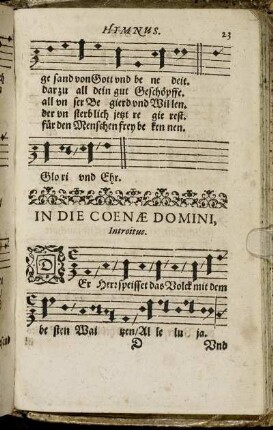 HYMNUS. 23
ge sand von Gott vnd be ne deit.
dar zu all dein gut Geschöpffe.
all vn ser Be gierd vnd Wil len.
der vn sterb lich jetzt re gie rest.
für den Menschen frey be ken nen.
Glo ri vnd Ehr.
IN DIE COENÆ DOMINI,
Introitus.
DEr Herr speisset das Volck mit dem
be sten Wai tzen/ Al le lu ja.
D Vnd